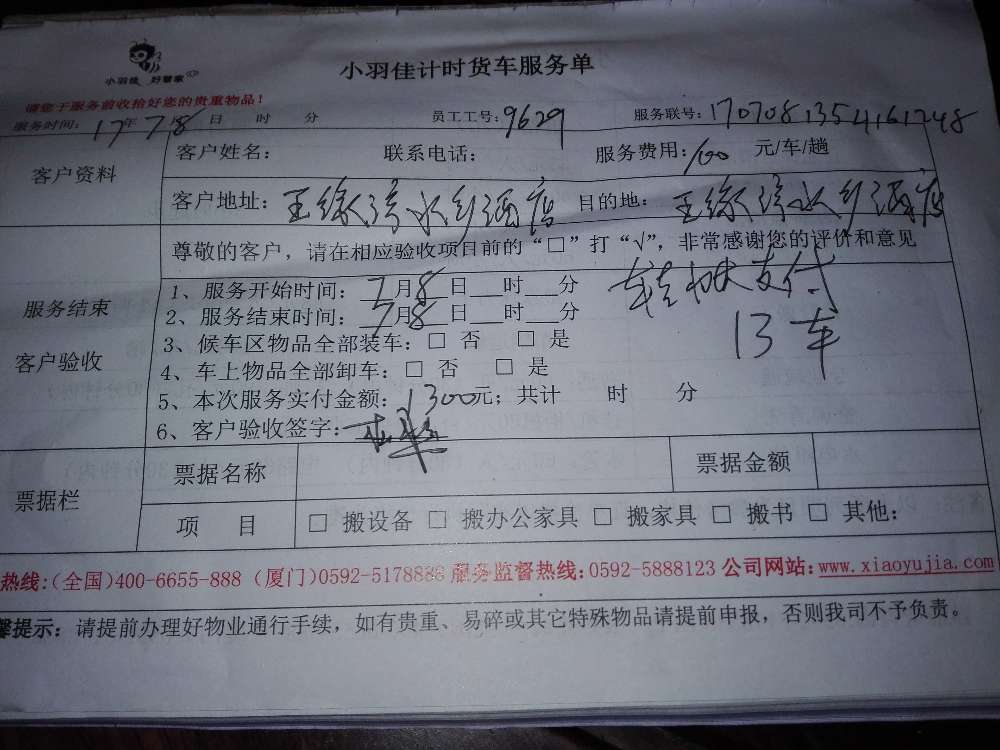 小羽佳 好管家
小羽佳计时货车服务单
请您于服务前收拾好您的贵重物品！
服务时间：17年7月8日 时 分 员工工号：9629 服务联号：1707081354161248
客户资料
客户姓名： 联系电话： 服务费用：100 元/车/趟
客户地址： 水乡酒店 目的地： 水乡酒店
尊敬的客户，请在相应验收项目前的“□”打“√”，非常感谢您的评价和意见
服务结束
客户验收
1、服务开始时间：7月8日___时___分
支付
2、服务结束时间：7月8日___时___分
13车
3、候车区物品全部装车：□ 否 □ 是
4、车上物品全部卸车：□ 否 □ 是
5、本次服务实付金额：1300元；共计 时 分
6、客户验收签字：
票据栏
票据名称 票据金额
项 目 □ 搬设备 □ 搬办公家具 □ 搬家具 □ 搬书 □ 其他：
热线：(全国)400-6655-888 (厦门)0592-5178888 服务监督热线：0592-5888123 公司网站：www.xiaoyujia.com
馨提示：请提前办理好物业通行手续，如有贵重、易碎或其它特殊物品请提前申报，否则我司不予负责。